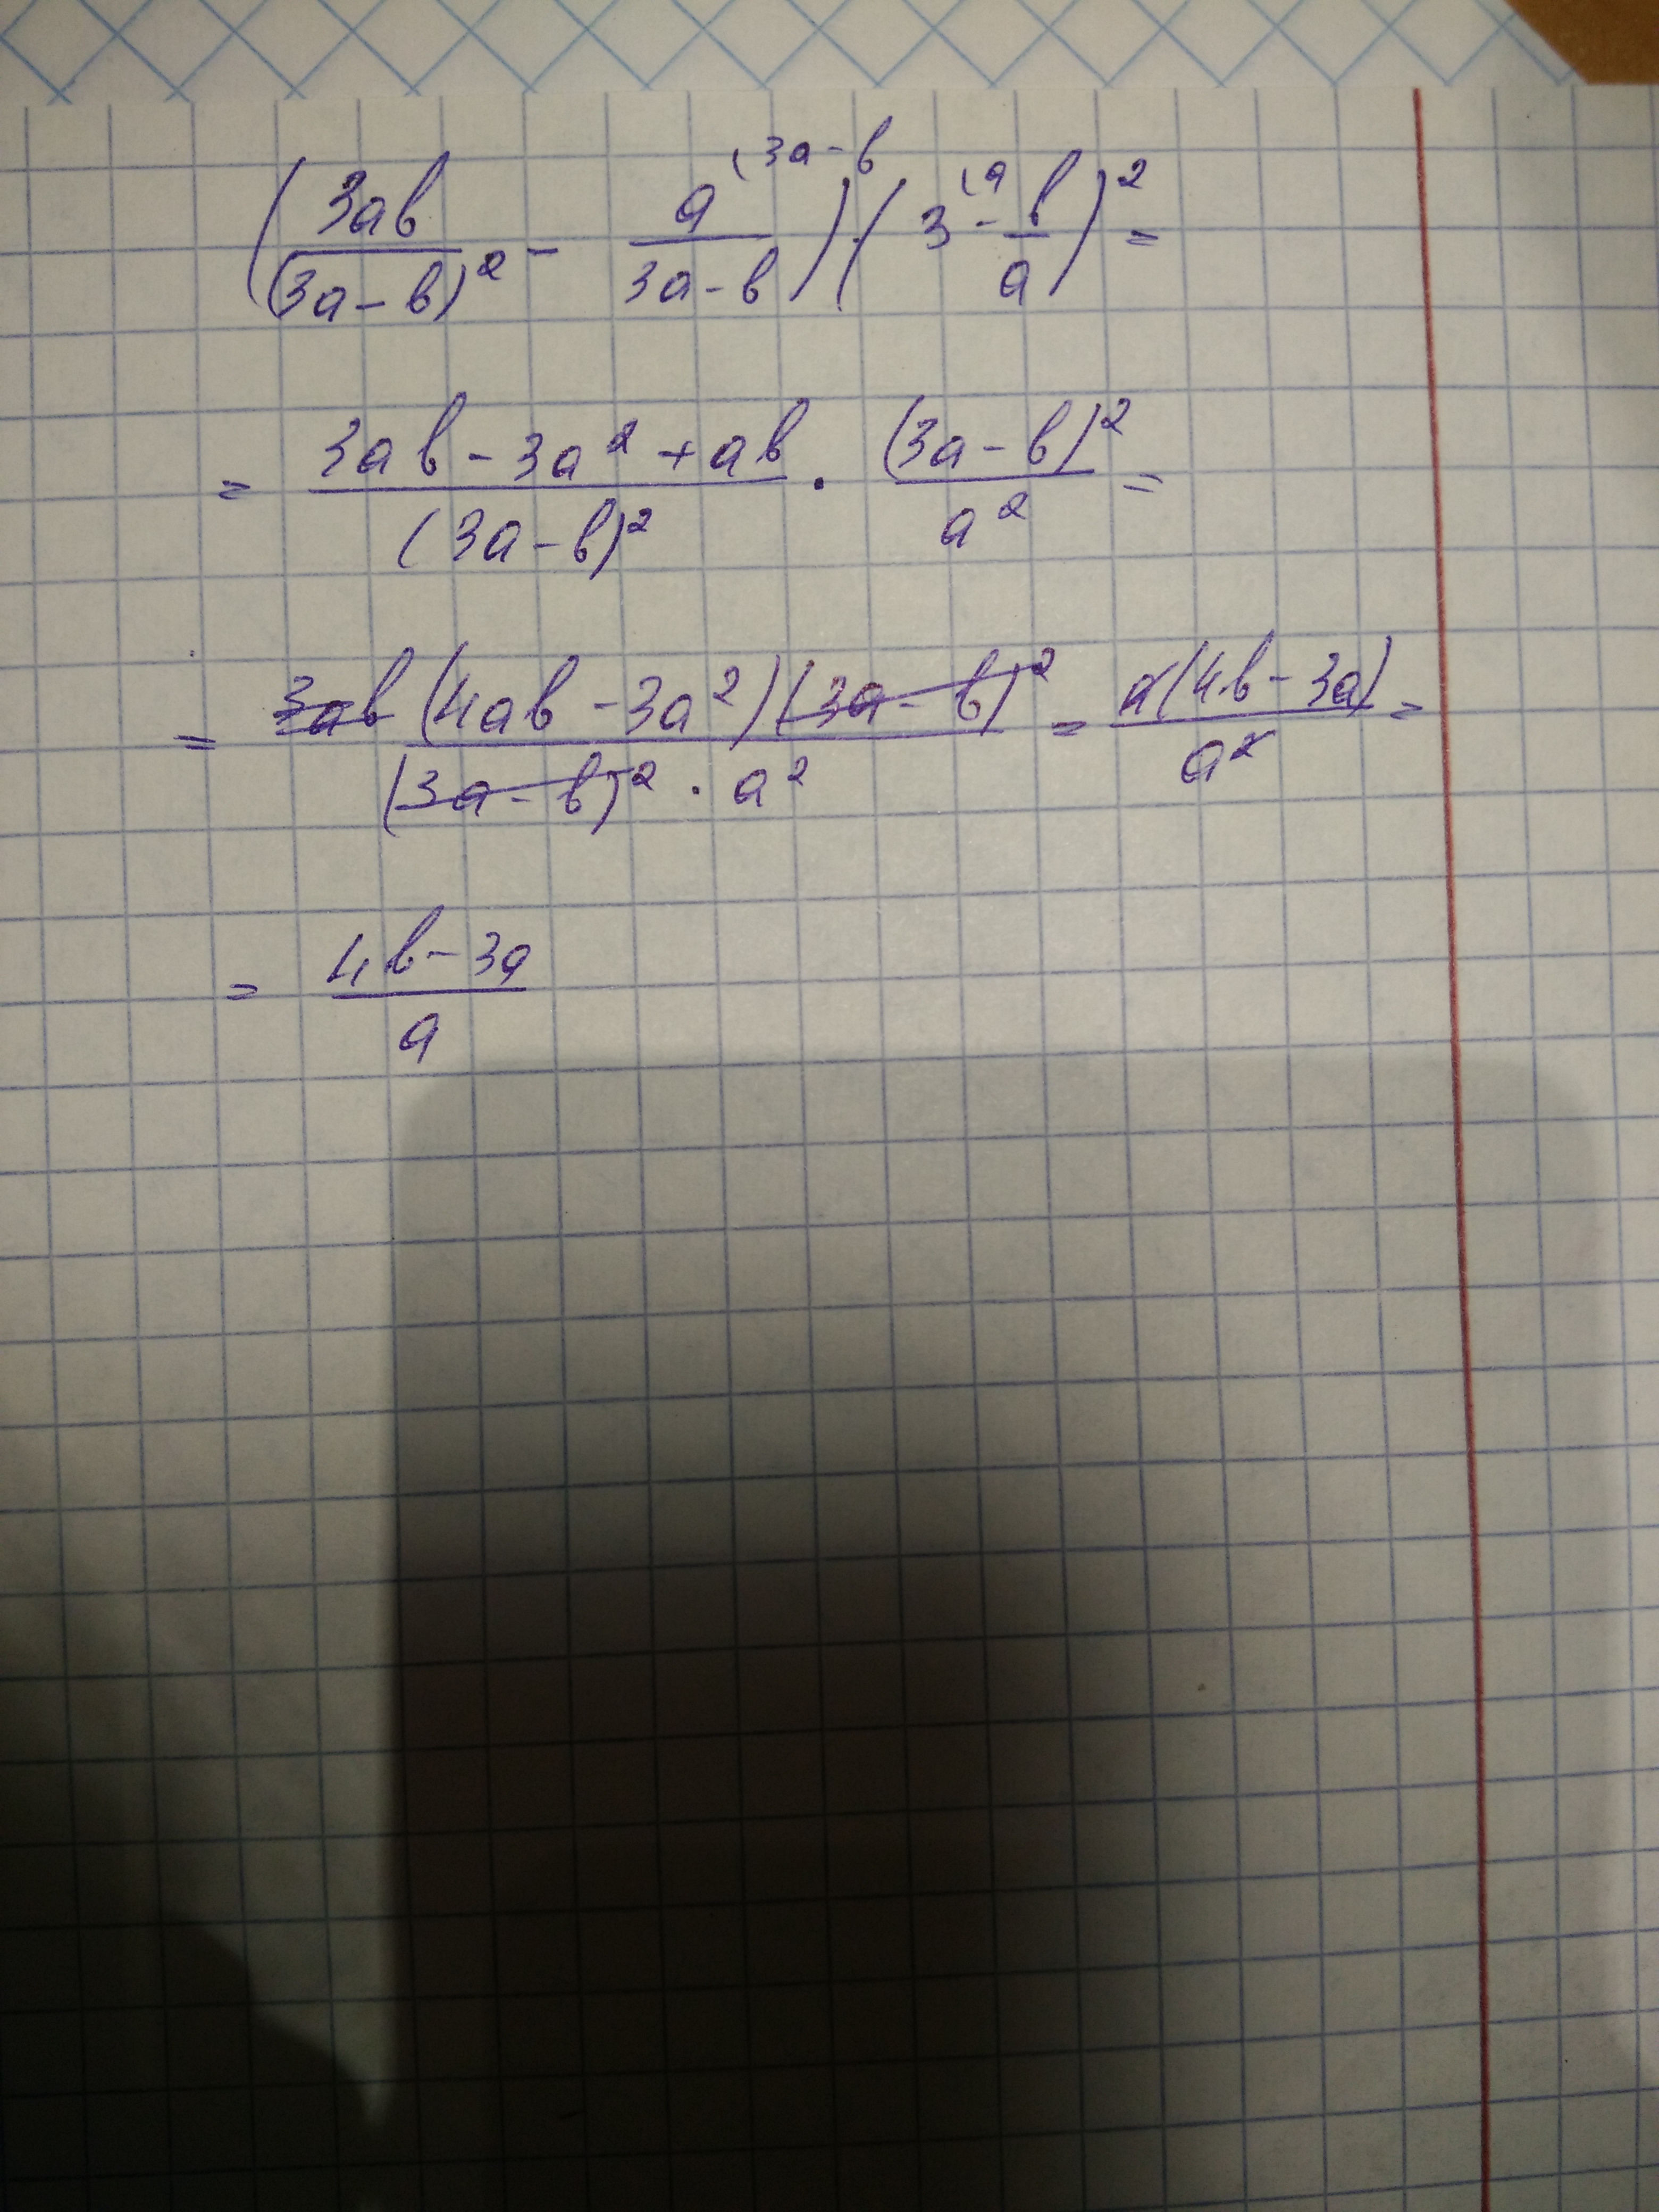 (3ab/(3a-b)² - a/(3a-b) ⁽³ᵃ⁻ᵇ) · (3 ⁽ᵃ - b/a)² =
= (3ab - 3a² + ab)/(3a-b)² · (3a-b)²/a² =
= 3ab (4ab - 3a²)(3a-b)²/((3a-b)² · a²) = a(4b-3a)/a² =
= (4b-3a)/a